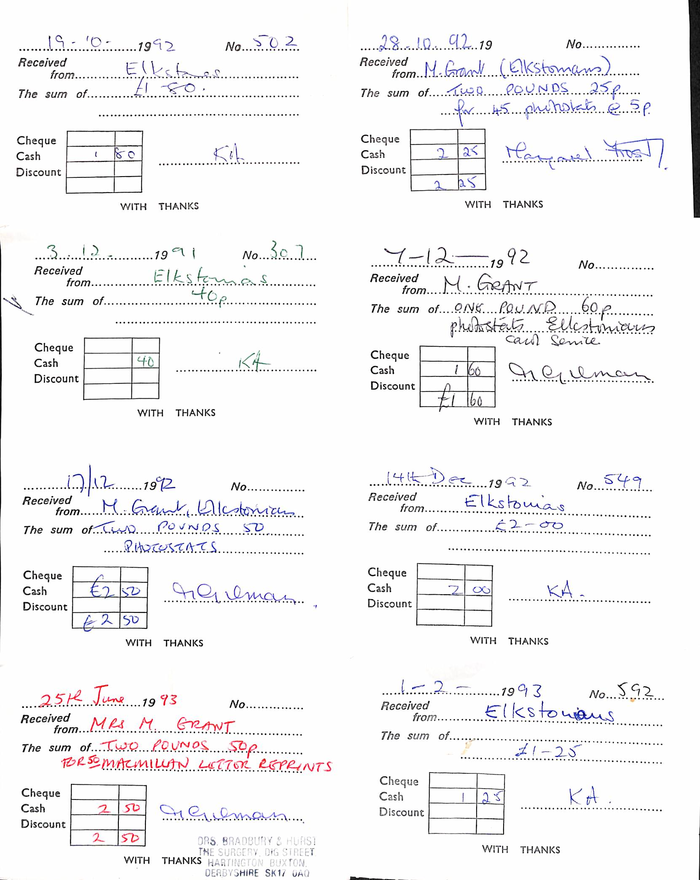 19-10-1992 No. 502
Received from Elkstonians
The sum of £1-80.
Cheque
Cash 1 80 KA
Discount
WITH THANKS
28.10.92.19 No.
Received from M. Grant (Elkstonians)
The sum of TWO POUNDS 25p
for 45 photostats @ 5p
Cheque
Cash 2 25 Margaret
Discount
2 25
WITH THANKS
3.12.1991 No. 307
Received from Elkstonias
The sum of 40p
Cheque
Cash 40 KA
Discount
WITH THANKS
7-12-1992 No.
Received from M. GRANT
The sum of ONE POUND 60p
photostats Elkstonians
Carol Service
Cheque
Cash 1 60
Discount
£1 60
WITH THANKS
17/12 1992 No.
Received from M. Grant, Elkstonian
The sum of TWO POUNDS 50
PHOTOSTATS
Cheque
Cash £2 50
Discount
£2 50
WITH THANKS
14th Dec 1992 No. 549
Received from Elkstonias
The sum of £2-00
Cheque
Cash 2 00 KA.
Discount
WITH THANKS
25th June 1993 No.
Received from MRS M. GRANT
The sum of TWO POUNDS 50p
FOR 50 MACMILLAN LETTER REPRINTS
Cheque
Cash 2 50
Discount
2 50
WITH THANKS
DRS. BRADBURY & HURST
THE SURGERY, DIG STREET
HARTINGTON, BUXTON,
DERBYSHIRE SK17 0AQ
1-2-1993 No. 592
Received from Elkstonians
The sum of
£1-25
Cheque
Cash 1 25 KA.
Discount
WITH THANKS